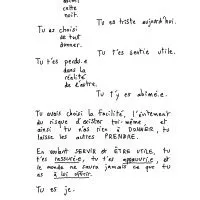 cette
nuit.
Tu es triste aujourd'hui.
Tu as choisi
de tout
donner.
Tu t'es sentie utile.
Tu t'es perdu.e
dans la
réalité
de l'autre.
Tu t'y es abîmé.e.
Tu avais choisi la facilité, l'évitement
du risque d'exister toi-même, et
ainsi tu n'as rien à DONNER, tu
laisse les autres PRENDRE.
En voulant SERVIR et ÊTRE UTILE, tu
t'es rassuré.e, tu t'es appauvri.e, et
le monde ne saura jamais ce que tu
as à lui offrir.
Tu es je.